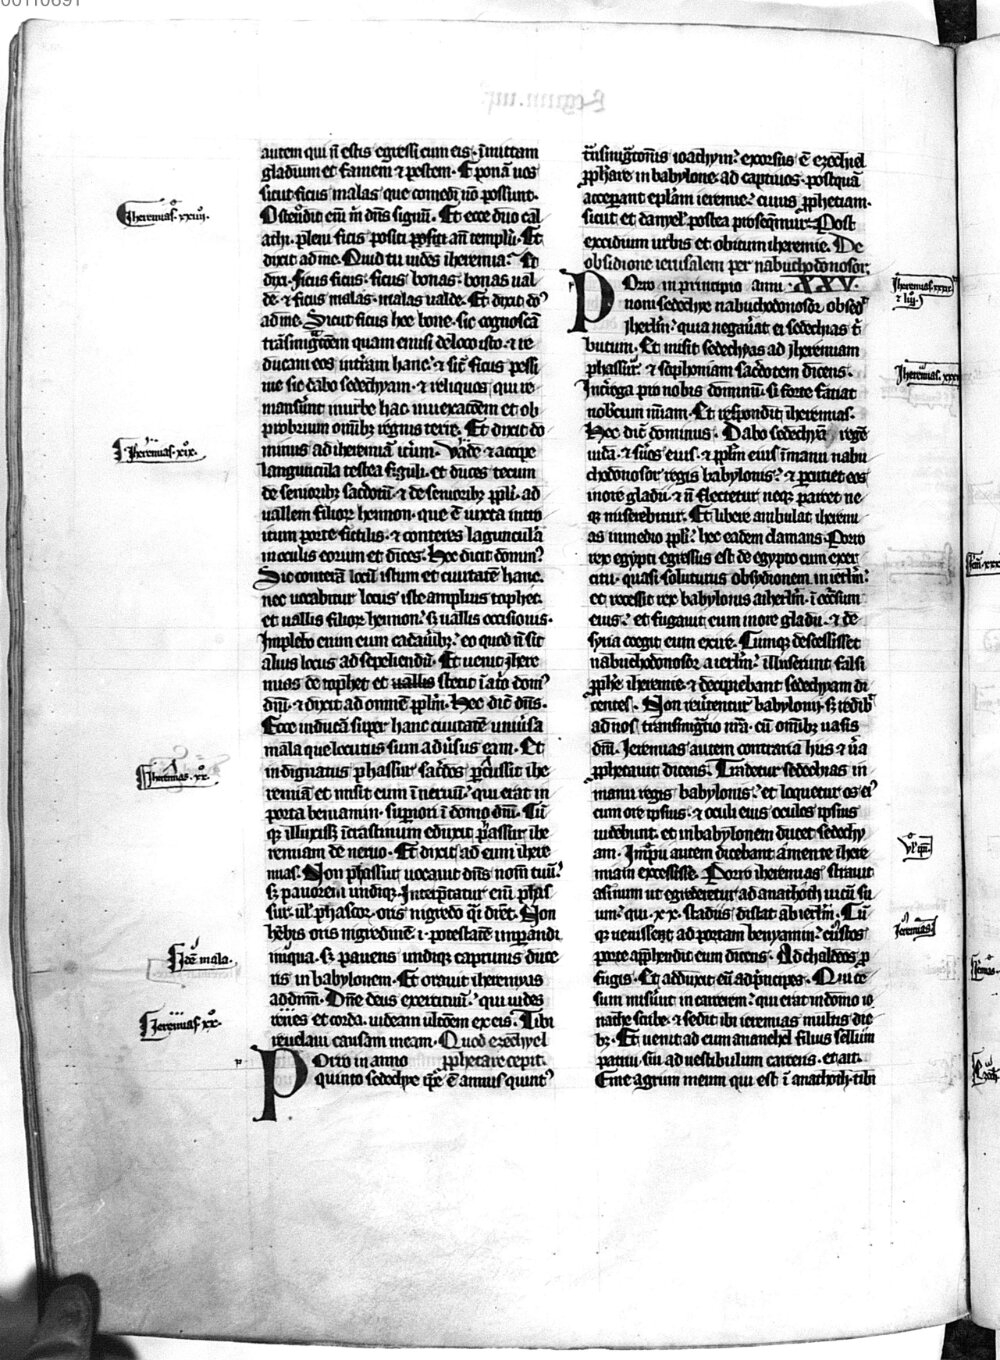 autem qui ñ estis egressi cum eis. īmittam
gladium et famem ⁊ pestem. Et ponā uos
sicut ficus malas que comedi nō possunt.
Ostendit eni᷑ m̄ dn̄s signū. Et ecce duo cal
athi. pleni ficis positi an̄ templū. Et
dixit ad me. Quid tu uides iheremia? Et
dixi. ficus ficus. ficus bonas. bonas ual
de. ⁊ ficus malas. malas ualde. Et dixit do᷒
ad me. Sicut ficus hee bone. sic cognoscā
trāsmigr̄tōem quam emisi de loco isto. ⁊ re
ducam eos in terram hanc. ⁊ sic̄ ficus pessi
me sic dabo sedechyam. ⁊ reliquos qui re
manserunt in urbe hac. in uexatōem et ob
probrium omībꝫ regnis terre. Et dixit do
minus ad iheremiā iterum. Vade ⁊ accipe
langunculā testea figuli. et duces tecum
de senioribꝫ sacdotū. ⁊ de senioribꝫ ppl̄i. ad
uallem filior̄ hennon. que ē iuxta intro
itum porte fictilis. ⁊ conteres lagunculā
in oculis eorum et dices. Hec dicit domin᷒
Sic conterā locū istum et ciuitatē hanc.
nec uocabitur locus iste amplius tophet.
et uallis filior̄ hennon. sꝫ uallis occisionis.
Impleto enim eum cadauībꝫ. eo quod ñ sit
alius locus ad sepeliendū. Et uenit ihere
mias de tophet et uallis stetit ī atō dom᷒
dn̄i. ⁊ dixit ad omnē ppl̄m. Hec dic̄ dn̄s.
Ecce inducā super hanc ciuitatē uniūsa
mala que locutus sum aduersus eam. Et
indignatus phassur sac̄dos percussit ihe
remiā et misit eum ī neruū. qui erat in
porta beniamin. superiori ī domo dn̄i. Cū
qꝫ illuxissꝫ ī crastinum eduxit phassur ihe
remiam de neruo. Et dixit ad eum ihere
mias. Non phassur uocauit dn̄s nom̄ tuū.
sꝫ pauorem undiqꝫ. Interp̄tatur eni᷑ phas
sur. ul̄ phascor. oris nigredo qi᷑ diret. Non
hēbis oris nigredinē .i. potestatē imperandi
iniqua. sꝫ pauens undiqꝫ captiuus duce
ris in babylonem. Et orauit iheremyas
ad dn̄m. Dn̄e deus exercituū. qui uides
renes et corda. uideam ultōem ex eis. Tibi
reuelaui causam meam. Quod ezechyel
Porro in anno pphetare cepit.
quinto sedechye qi᷑ ē annus quint᷒
trāsmigr̄tōnis ioachym. exorsus ē ezechiel
pphare in babylone ad captiuos. postquā
acceperant epl̄am ieremie. cuius pphetiam.
sicut et danyel. postea prosequimur. Post
excidium urbis et obitum iheremie. De
obsidione ierusalem per nabuchodonosor.
Porro in principio anni .XXV.
noni sedechye nabuchodonosor obsed᷑
iherlm̄. quia negauerat ei sedechias tri
butum. Et misit sedechyas ad iheremiam
phassur. ⁊ sophoniam sacdotem dicens.
Interroga pro nobis dominū. si forte faciat
nobiscum mīam. Et respondit iheremias.
Hec dic̄ dominus. Dabo sedechyā regē
iuda. ⁊ suos eius. ⁊ ppl̄m eius ī manu nabu
chodonosor regis babylonis. ⁊ percutiet eos
in ore gladii. ⁊ ñ flectetur neqꝫ parcet ne
qꝫ miserebitur. Et libere ambulat iheremi
as in medio ppl̄i. hec eadem clamans. Porro
rex egypti egressus est de egypto cum exer
citu. quasi soluturus obsydionem in ierlm̄.
et recessit rex babylonis a iherlm̄. ī occ̄sum
eius. et fugauit eum in ore gladii. ⁊ de
syria coegit eum exire. Cumqꝫ descessisset
nabuchodonosor a ierlm̄. illuserunt falsi
pphe iheremie ⁊ decipiebant sedechyam di
centes. Non reuertentur babylonii. sꝫ redibūt
ad nos transmigr̄tio nr̄a. cū omībꝫ uasis
dn̄i. Ieremias autem contraria hiis ⁊ uera
pphetauit dicens. Tradetur sedechias in
manu regis babylonis. et loquetur os ei᷒
cum ore ipsius. ⁊ oculi eius oculos ipsius
uidebunt. et in babylonem ducet sedechy
am. Impii autem dicebant a mente ihere
miam excessisse. Porro iheremias strauit
asinum ut egrederetur ad anathoth uicū su
um. qui .xx. stadiis distat ab ierlm̄. Cū
qꝫ uenissent ad portam benyamin. custos
porte apphendit eum dicens. Ad chaldeos p
fugis. Et adduxit eū ad principes. Qui ce
sum miserunt in carcerem. qui erat in domo io
nathe scribe. ⁊ sedit ibi ieremias multis die
bꝫ. Et uenit ad eum ananehel filius sellum
patrui sui ad uestibulum carceris. et ait.
Eme agrum meum qui est ī anathoth. tibi
Iheremias. xxiiij.
Iheremias. xix.
Iheremias. xx.
Ieremias xx.
Iheremias. xxix
Iheremias. xxx
Ieremias